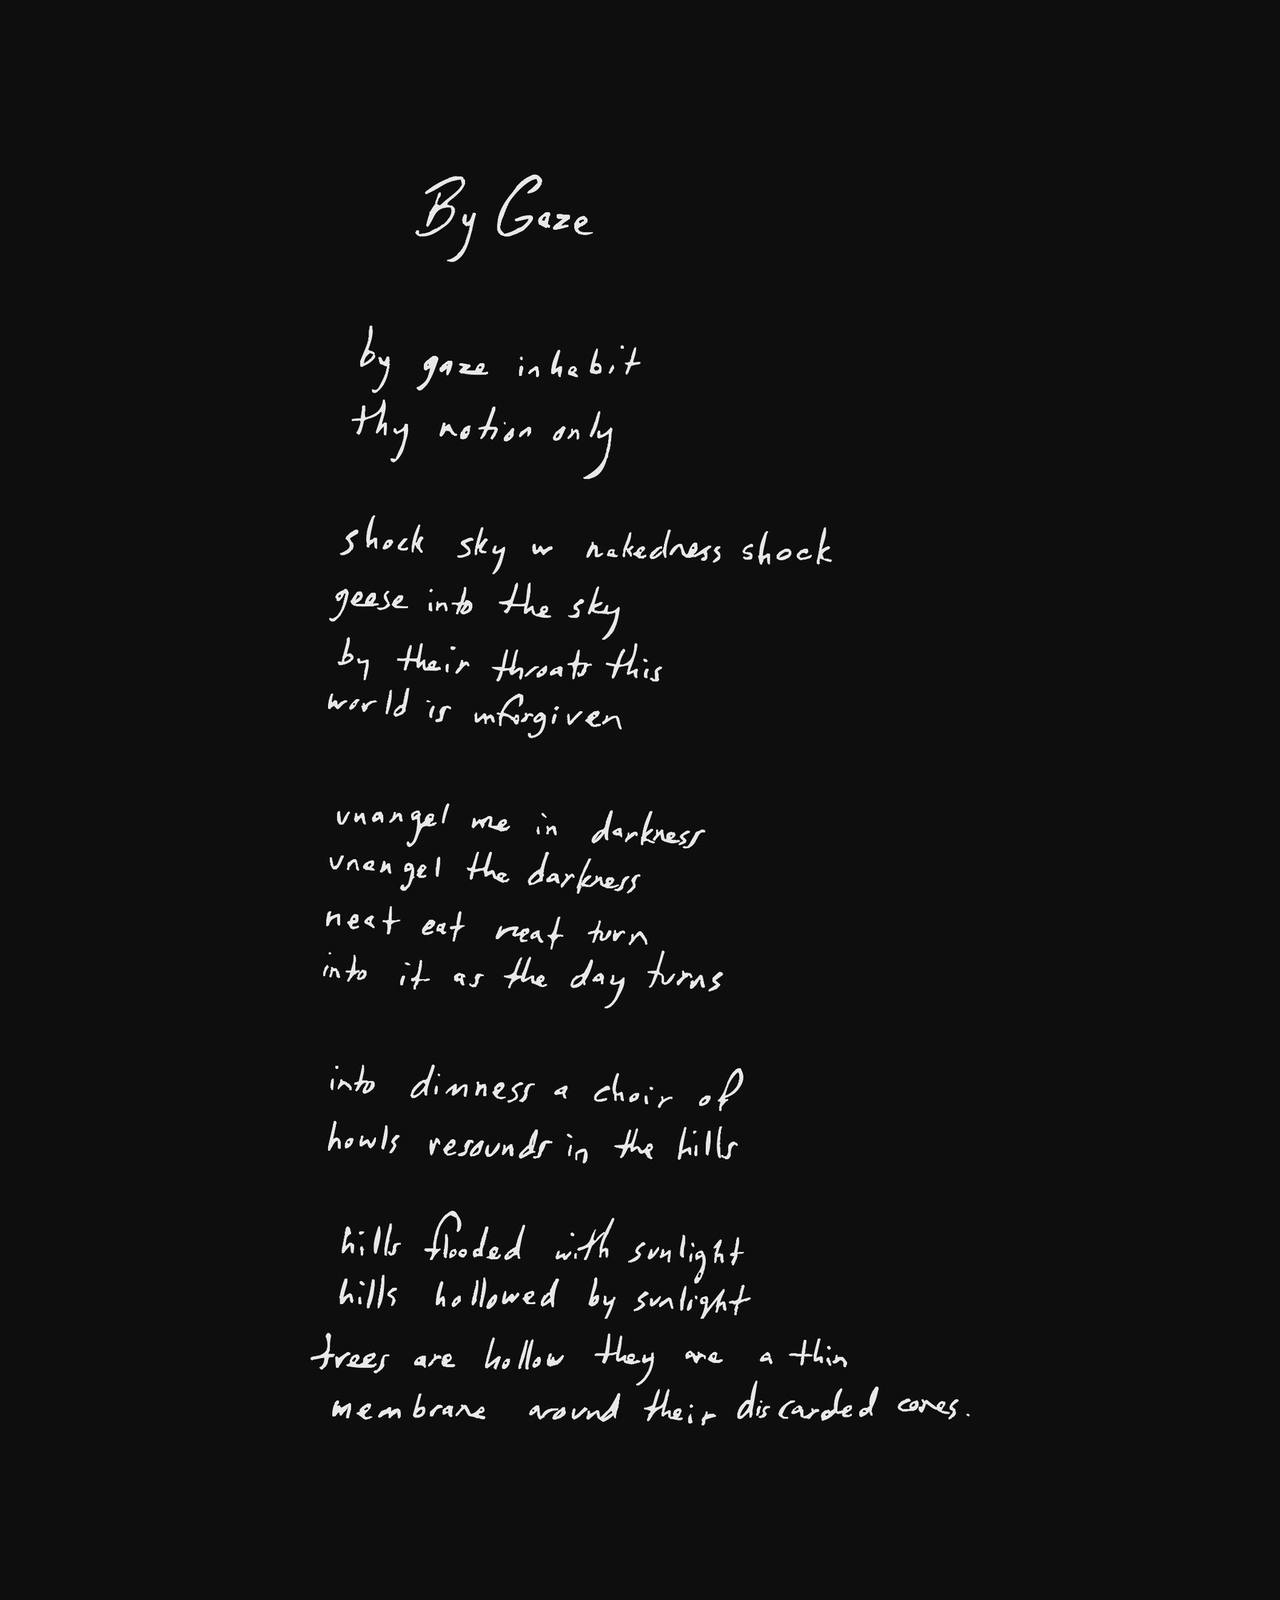 By Gaze
by gaze inhabit
thy notion only
shock sky w nakedness shock
geese into the sky
by their throats this
world is unforgiven
unangel me in darkness
unangel the darkness
neat eat neat turn
into it as the day turns
into dimness a choir of
howls resounds in the hills
hills flooded with sunlight
hills hollowed by sunlight
trees are hollow they are a thin
membrane around their discarded cores.